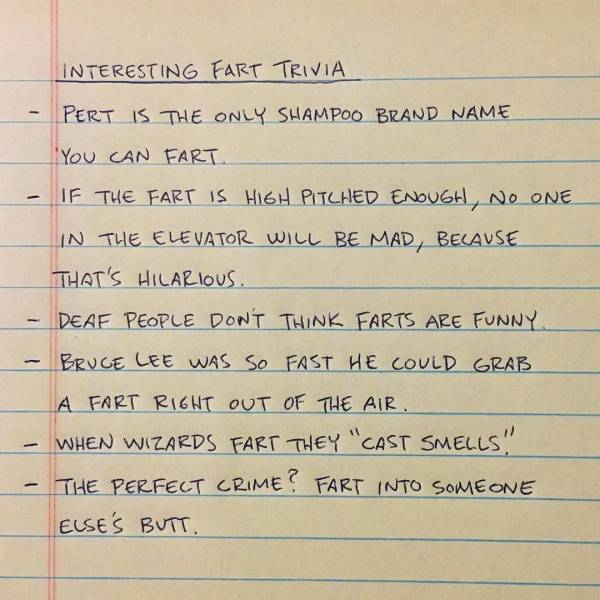 INTERESTING FART TRIVIA
- PERT IS THE ONLY SHAMPOO BRAND NAME
YOU CAN FART.
- IF THE FART IS HIGH PITCHED ENOUGH, NO ONE
IN THE ELEVATOR WILL BE MAD, BECAUSE
THAT'S HILARIOUS.
- DEAF PEOPLE DON'T THINK FARTS ARE FUNNY.
- BRUCE LEE WAS SO FAST HE COULD GRAB
A FART RIGHT OUT OF THE AIR.
- WHEN WIZARDS FART THEY "CAST SMELLS."
- THE PERFECT CRIME? FART INTO SOMEONE
ELSE'S BUTT.